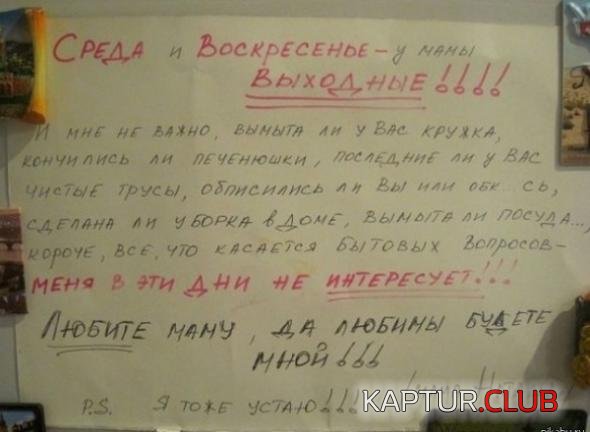 Среда и Воскресенье – у мамы
выходные!!!!
И мне не важно, вымыта ли у вас кружка,
кончились ли печенюшки, последние ли у вас
чистые трусы, обписились ли вы или обк...сь,
сделана ли уборка в доме, вымыта ли посуда...,
короче, все, что касается бытовых вопросов –
меня в эти дни не интересует!!!
Любите маму, да любимы будете
мной!!!
P.S. Я тоже устаю!!!
KAPTUR.CLUB
pikabu.ru